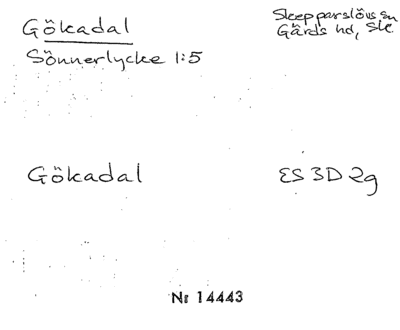 Gökadal
Skepparslövs sn
Gärds hd, Sk
Sönnerlycke 1:5
Gökadal
ES 3D 2g
Nr 14443